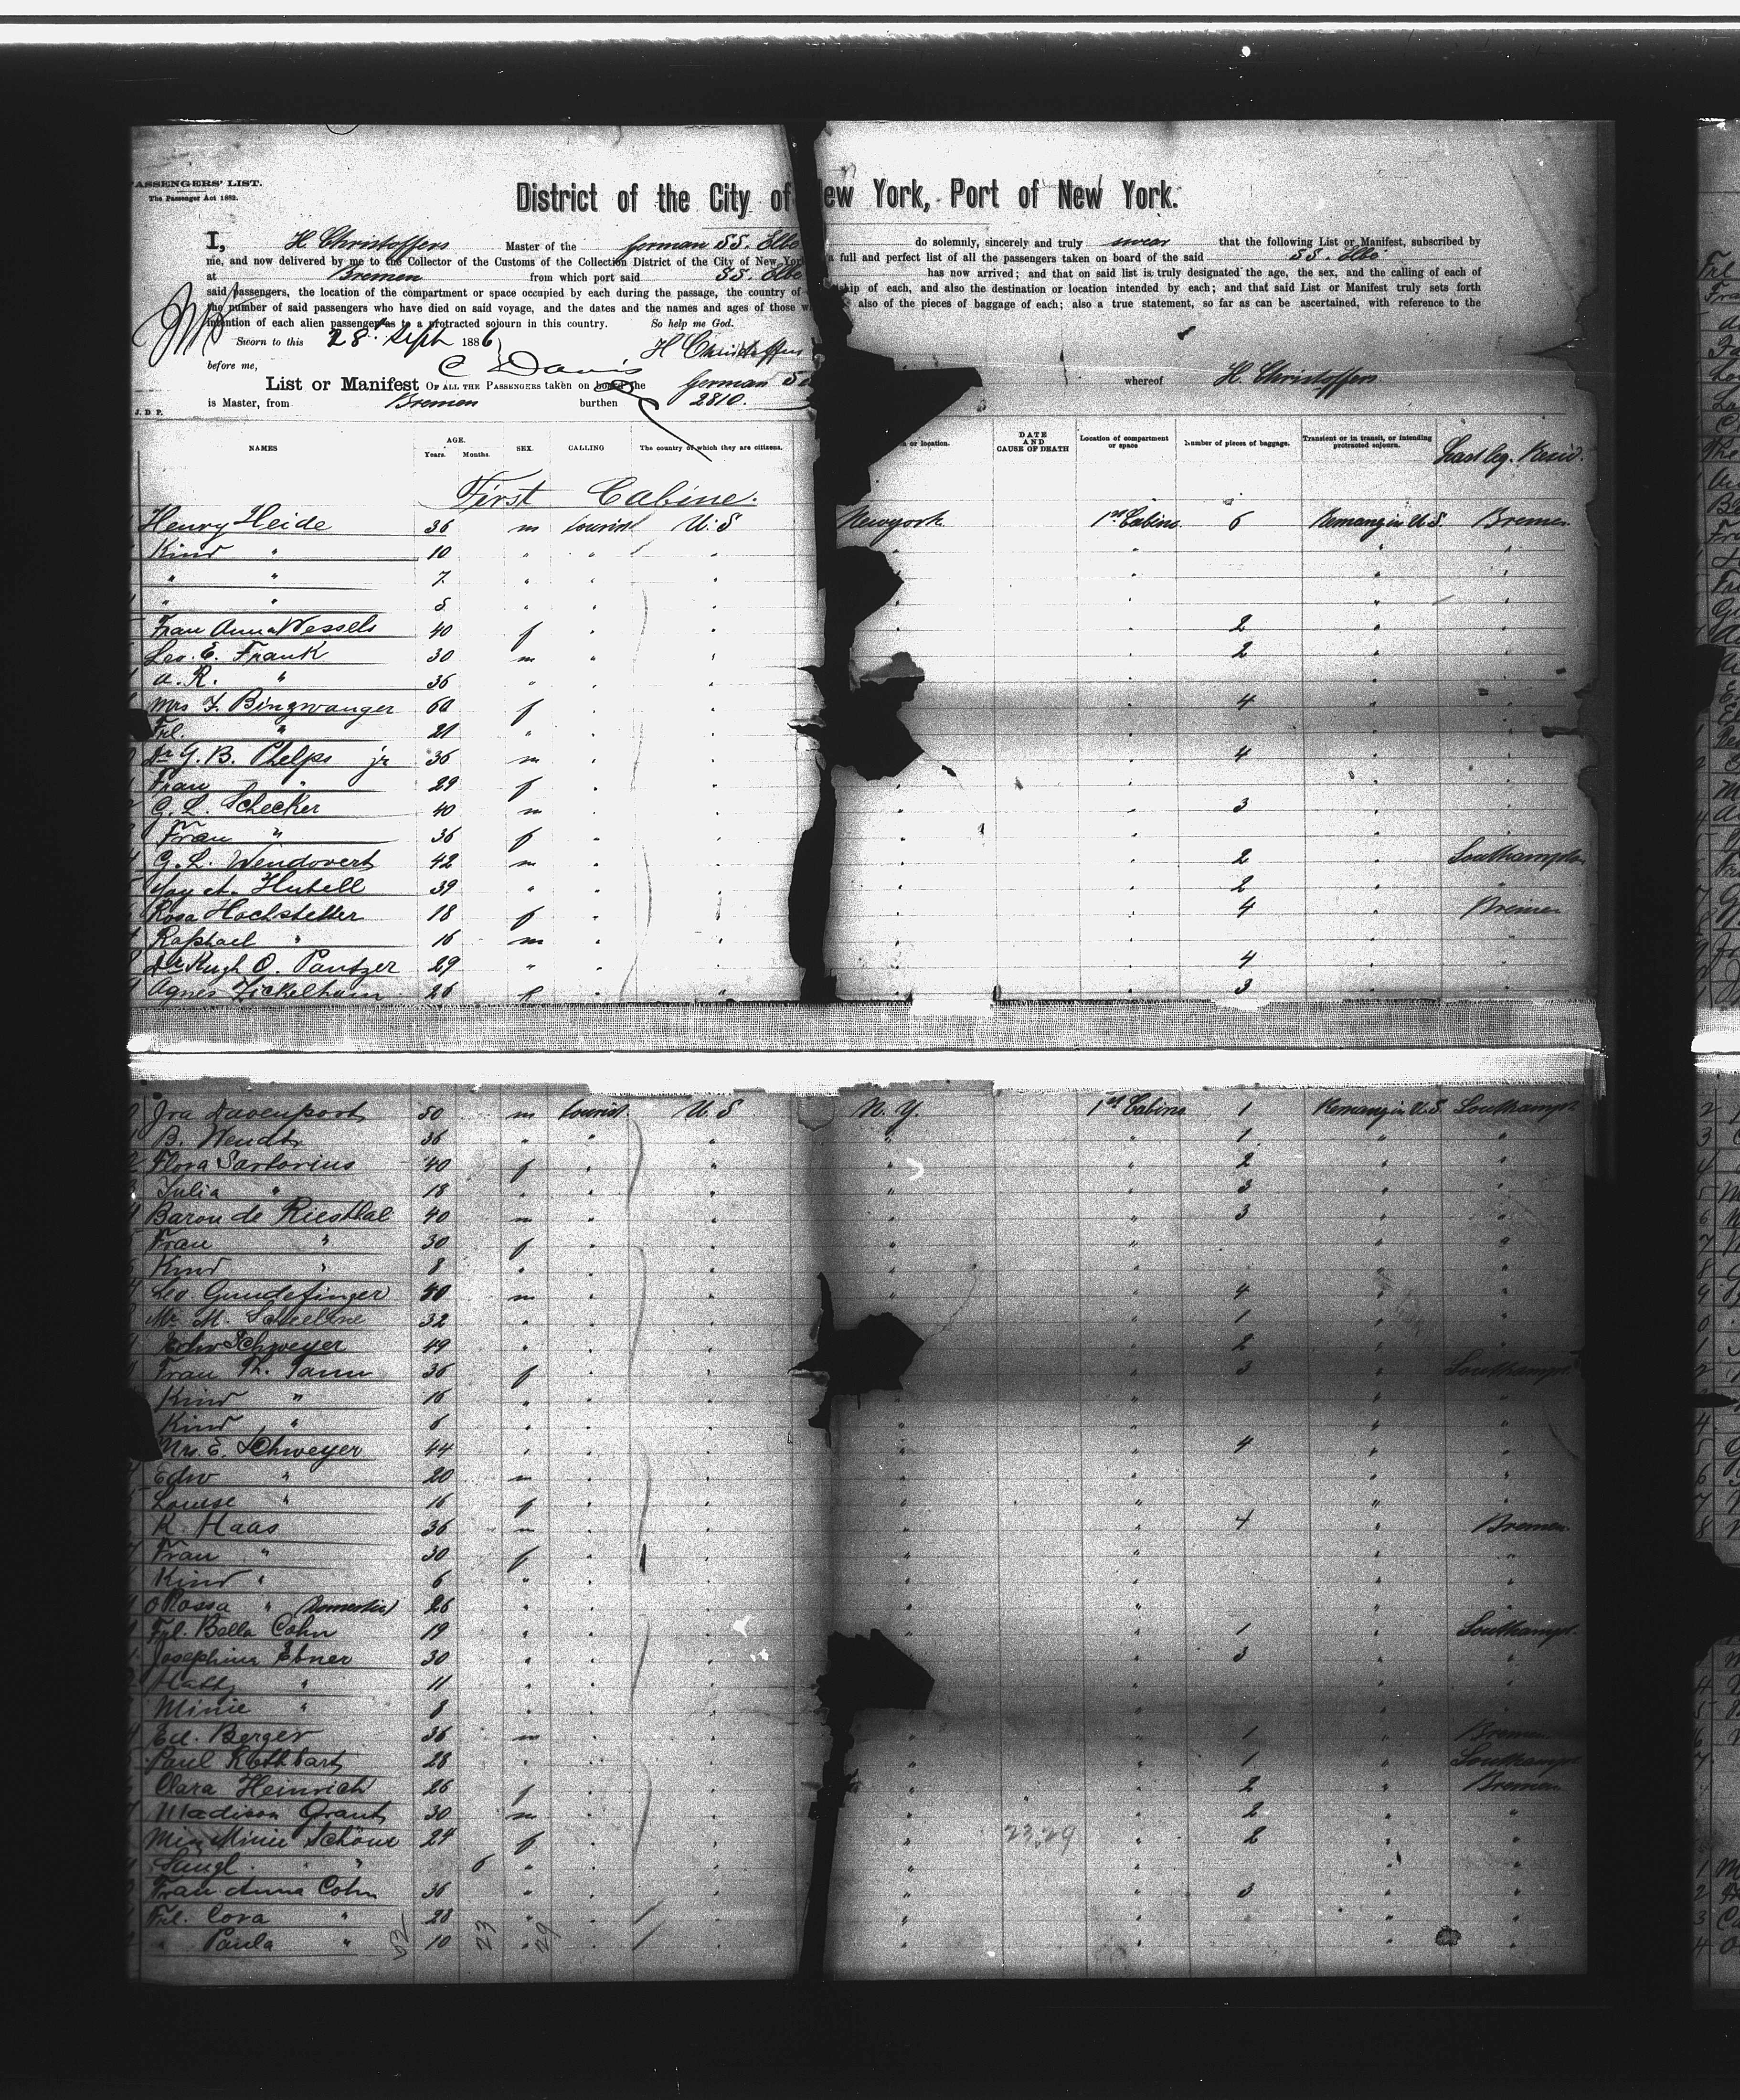 PASSENGERS' LIST.
The Passenger Act 1882.
District of the City of New York, Port of New York.
I, H Christoffers Master of the German SS. Elbe do solemnly, sincerely and truly swear that the following List or Manifest, subscribed by
me, and now delivered by me to the Collector of the Customs of the Collection District of the City of New York a full and perfect list of all the passengers taken on board of the said SS. Elbe
at Bremen from which port said SS. Elbe has now arrived; and that on said list is truly designated the age, the sex, and the calling of each of
said passengers, the location of the compartment or space occupied by each during the passage, the country of ship of each, and also the destination or location intended by each; and that said List or Manifest truly sets forth
the number of said passengers who have died on said voyage, and the dates and the names and ages of those also of the pieces of baggage of each; also a true statement, so far as can be ascertained, with reference to the
intention of each alien passenger as to a protracted sojourn in this country. So help me God.
Sworn to this 28. Sept 1886 H Christoffers
before me, C Davis
List or Manifest OF ALL THE PASSENGERS taken on board the German whereof H. Christoffers
is Master, from Bremen burthen 2810.
J. D. P.
NAMES AGE. Years. Months. SEX. CALLING The country of which they are citizens. or location. DATE AND CAUSE OF DEATH Location of compartment or space Number of pieces of baggage. Transient or in transit, or intending protracted sojourn. Last leg. Resid.
First Cabine.
Henry Heide 36 m tourist U.S Newyork 1st Cabine 6 Remang in U.S. Bremen
Kind " 10 " " "
" " 7 " " "
" " 5 " " "
Frau Anna Wessels 40 f " " 2
Leo. E. Frank 30 m " " 2
A. R. " 36 " " "
Mrs F. Bingwanger 60 f " " 4
Frl. " 21 " " "
Dr G. B. Phelps jr 36 m " " 4
Frau " 29 f " "
G. L. Schecker 40 m " " 3
Frau " 36 f " "
G. L. Wendovert 42 m " " 2 Southampton
Jay A. Hubell 39 " " " 2 "
Rosa Hochstetter 18 f " " 4 Bremen
Raphael " 16 m " "
Dr Hugh O. Pantzer 29 " " " 4
Agnes Zickelham 26 f " " 3
Ira Davenport 50 m tourist U.S N.Y. 1st Cabine 1 Remang in U.S. Southampt
B. Wendt 36 " " " " " 1 " "
Flora Sartorius 40 f " " " " 2 " "
Julia " 18 " " " " " 3 " "
Baron de Riesthal 40 m " " " " 3 " "
Frau " 30 f " " " " " "
Kind " 8 " " " " " " "
Leo Gundefinger 40 m " " " " 4 " "
Mr M. Scheeline 32 " " " " " 1 " "
Edw Schweyer 49 " " " 2 "
Frau Th. Tamm 36 f " " " 3 " Southampt.
Kind " 16 " " " " " "
Kind " 6 " " " " " " "
Mrs. E. Schweyer 44 " " " " " 4 " "
Edw " 20 m " " " " " "
Louise " 16 f " " " " " "
K. Haas 36 m " " " " 4 " Bremen
Frau " 30 f " " " " " "
Kind " 6 " " " " " " "
O Rossa " (Domestic) 26 " " " " " " "
Frl. Bella Cohn 19 " " " " " 1 " Southampt.
Josephine Ebner 30 " " " " 3 " "
Hatty " 11 " " " " " "
Minie " 8 " " " " " "
Ed. Berger 36 m " " " " 1 " Bremen
Paul Rothbart 28 " " " " " 1 " Southampt
Clara Heinrich 26 f " " " " 2 " Bremen
Madison Grant 30 m " " " " 2 " "
Miss Minie Schöne 24 f " " " 23,29 " 2 " "
Saugl. " 6 " " " " " " "
Frau Anna Cohn 36 " " " " " 3 " "
Frl. Cora " 28 " " " " " " "
" Paula " 10 " " " " " " "
52 23 29